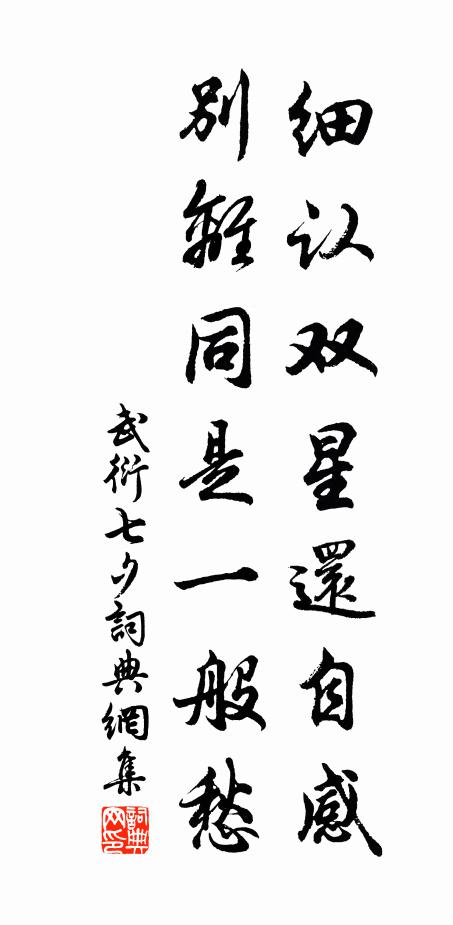 细认双星還自感
别離同是一般愁
武衍七夕詞典網集
詞典网印